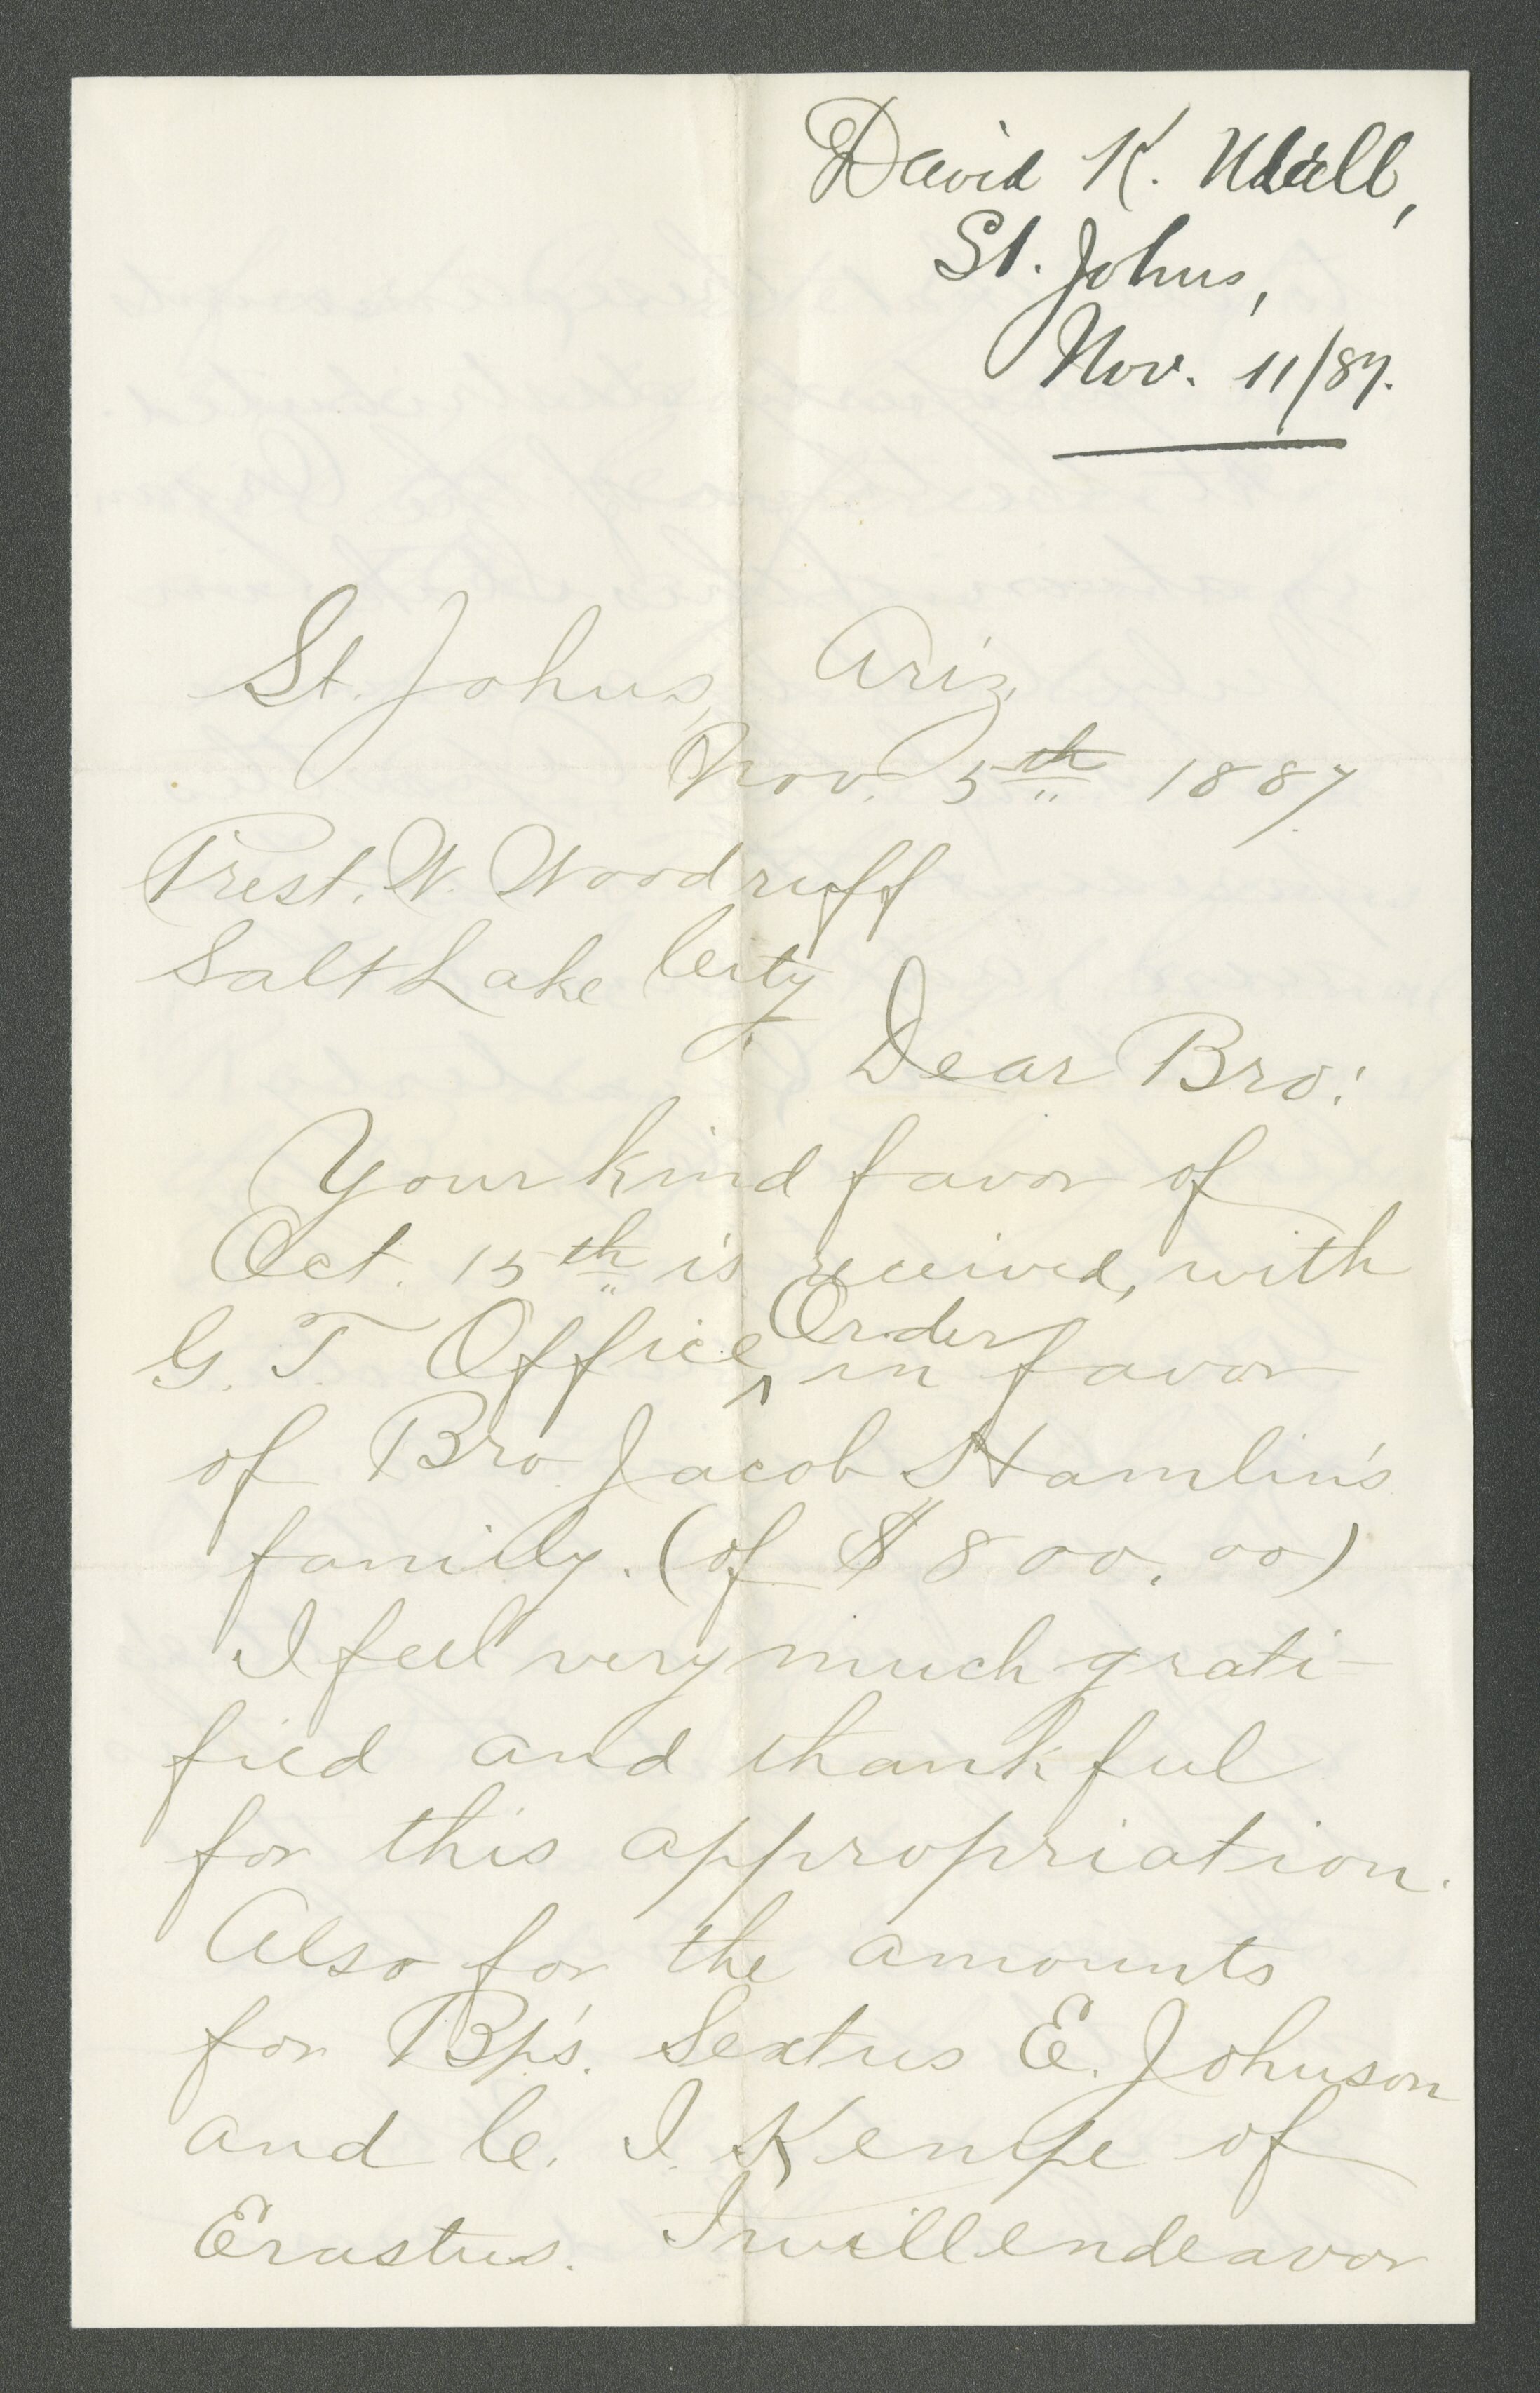 David K. Udall,
St. Johns,
Nov. 11/87.
St. Johns, Ariz,
Nov. 5th 1887.
Prest. W. Woodruff
Salt Lake City.
Dear Bro:
Your kind favor of
Oct. 15th is received, with
G. T. Office Order in favor
of Bro Jacob Hamlin's
family. (of $800.00)
I feel very much grati-
fied and thankful
for this appropriation.
Also for the amounts
for Bp's. Sextus E. Johnson
and C. I. Kempe of
Erastus. I will endeavor